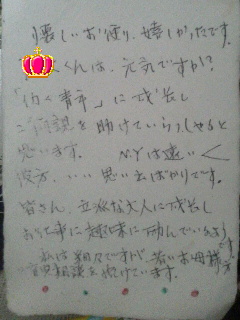 懐しいお便り、嬉しかったです。
くんは、元気ですか?
「働く青年」に成長し
ご両親を助けていらっしゃると
思います。 N.Yは遠い
彼方、いい思い出ばかりです。
皆さん、立派な大人に成長し
お仕事に趣味に励んでいるようです
私は細々ですが、若いお母様
育児相談を続けています。